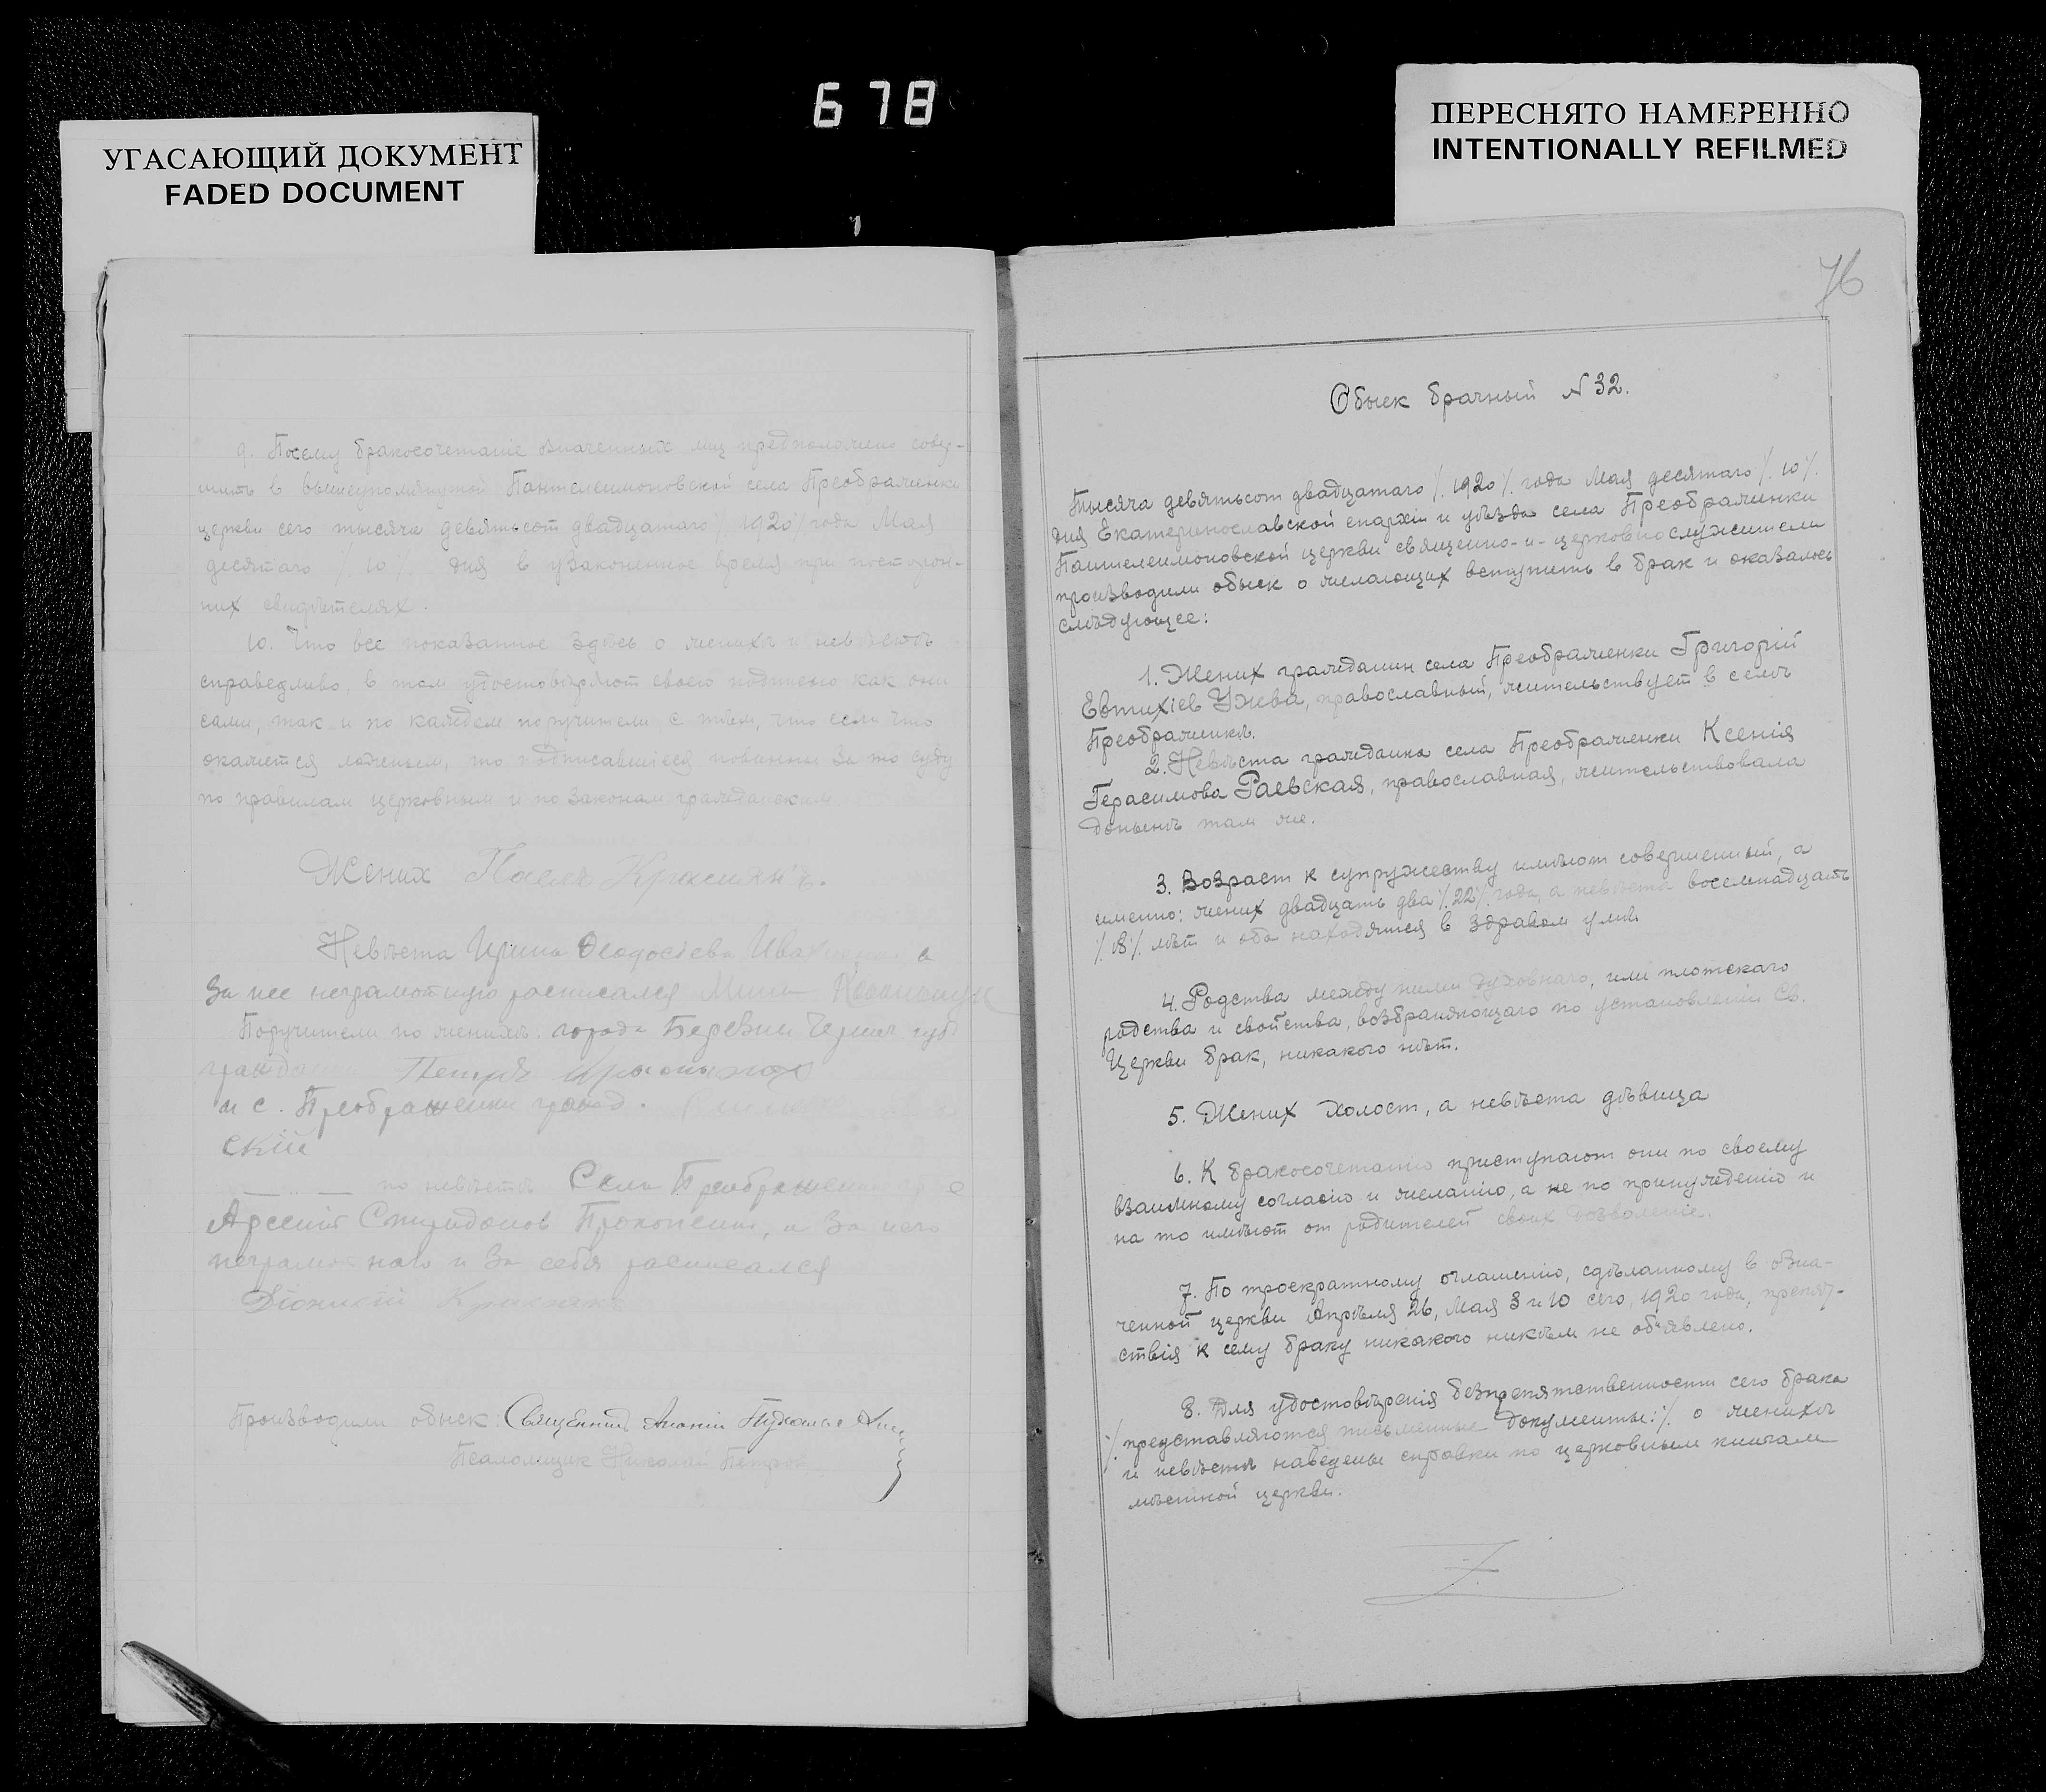 678
УГАСАЮЩИЙ ДОКУМЕНТ
FADED DOCUMENT
ПЕРЕСНЯТО НАМЕРЕННО
INTENTIONALLY REFILMED
9. Посему бракосочетаніе означенных лиц предположено совер-
шить в вышеупомянутой Пантелеимоновской села Преображенки
церкви сего тысяча девятьсот двадцатаго /. 1920 /. года Мая
десятаго /. 10 /. дня в узаконенное время при посторон-
них свидѣтелях.
10. Что все показанное здѣсь о женихѣ и невѣстѣ
справедливо, в том удостовѣряют своею подписью как они
сами, так и по каждом поручители с тѣм, что если что
окажется ложным, то подписавшіеся повинны за то суду
по правилам церковным и по законам гражданским.
Жених
Невѣста Ирина Ѳеодосіева а
за нее неграмотную расписался
Поручители по женихѣ: города губ.
Петръ
и с. Преображенки гражд.
скій
по невѣстѣ Села Преображенки
Арсеній Спиридонов Прокопенко, а за него
неграмотнаго и за себя расписался
Діонисій
Производили обыск: Священник
Псаломщик Николай Петров
76
Обыск брачный N 32.
Тысяча девятьсот двадцатаго /. 1920 /. года Мая десятаго /. 10 /.
дня Екатеринославской епархіи и уѣзда села Преображенки
Пантелеимоновской церкви священно-и-церковнослужители
производили обыск о желающих вступить в брак и оказалось
слѣдующее:
1. Жених гражданин села Преображенки Григорій
Евтихіев Ужва, православный, жительствует в селѣ
Преображенкѣ.
2. Невѣста гражданка села Преображенки Ксенія
Герасимова Раевская, православная, жительствовала
донынѣ там же.
3. Возраст к супружеству имѣют совершенный, а
именно: жених двадцать два /. 22 /. года, а невѣста восемнадцать
/. 18 /. лѣт и оба находятся в здравом умѣ.
4. Родства между ними духовнаго, или плотскаго
родства и свойства, возбраняющаго по установленію Св.
Церкви брак, никакого нѣт.
5. Жених холост, а невѣста дѣвица
6. К бракосочетанію приступают они по своему
взаимному согласію и желанію, а не по принужденію и
на то имѣют от родителей своих дозволеніе.
7. По троекратному оглашенію, сдѣланному в озна-
ченной церкви Апрѣля 26, Мая 3 и 10 сего, 1920 года, препят-
ствія к сему браку никакого никѣм не об'явлено.
8. Для удостовѣренія безпрепятственности сего брака
/. представляются письменные документы: /. о женихѣ
и невѣстѣ наведены справки по церковным книгам
мѣстной церкви.